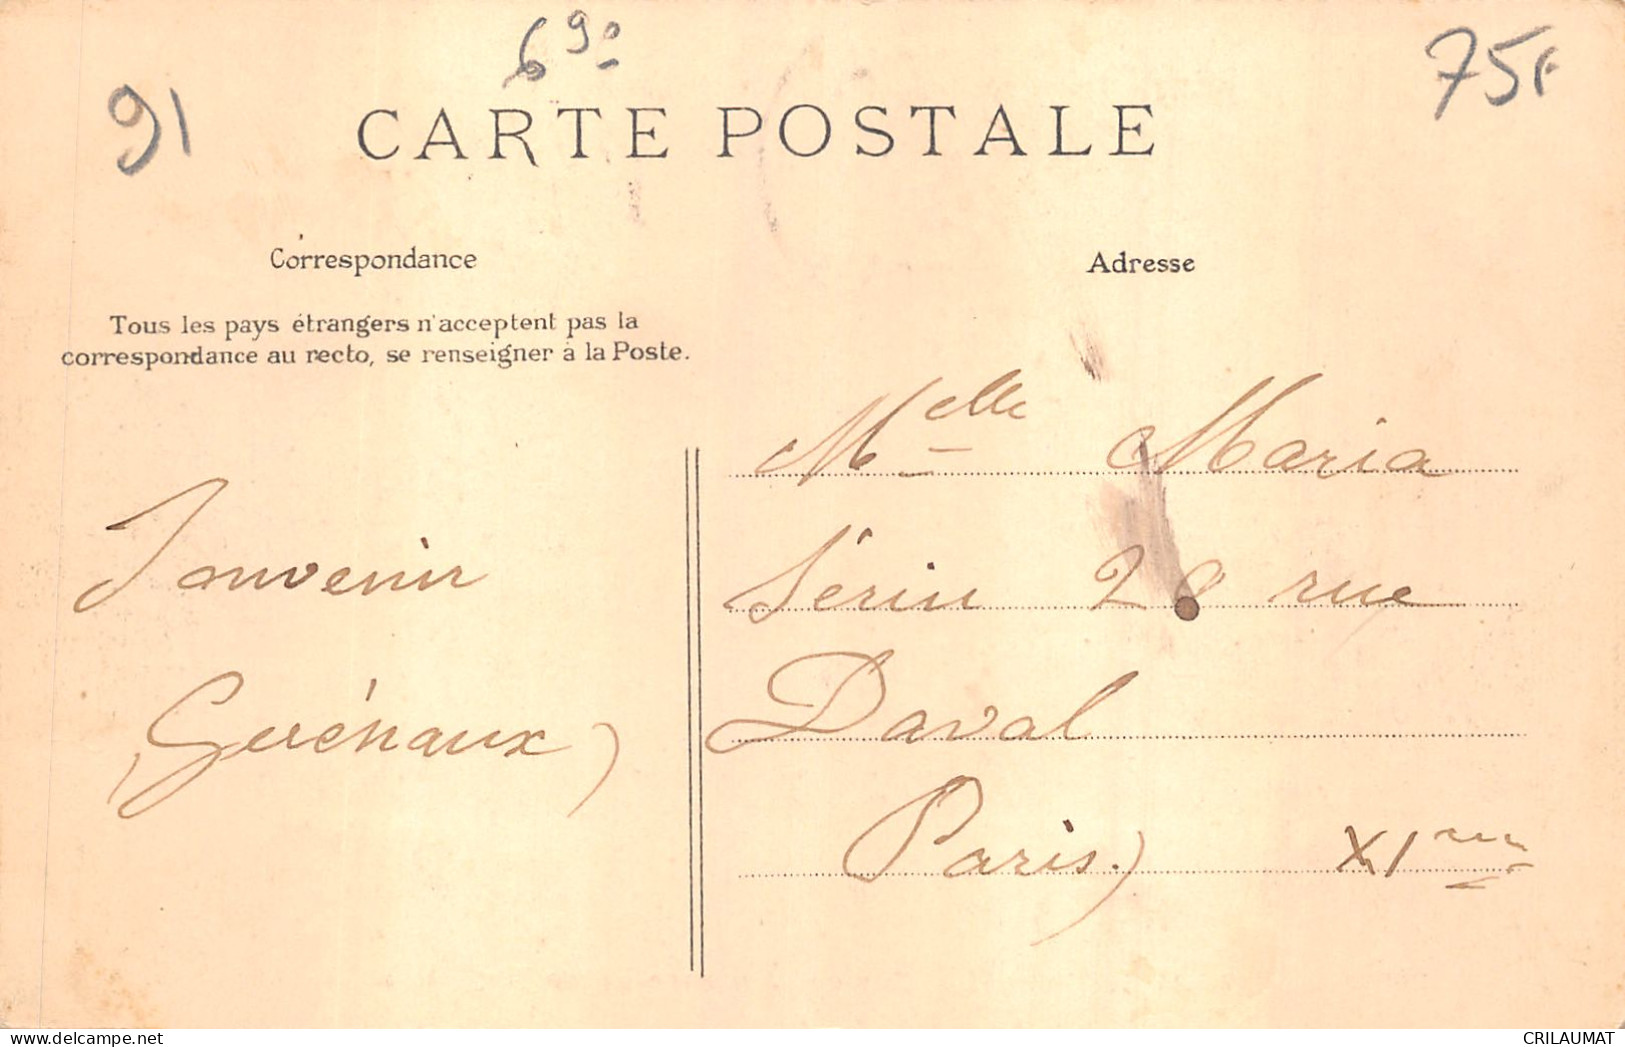 91
6 90
75F
CARTE POSTALE
Correspondance
Adresse
Tous les pays étrangers n'acceptent pas la
correspondance au recto, se renseigner à la Poste.
Souvenir
Melle Maria
Sérin 20 rue
Daval
Paris. XIme
CRILAUMAT